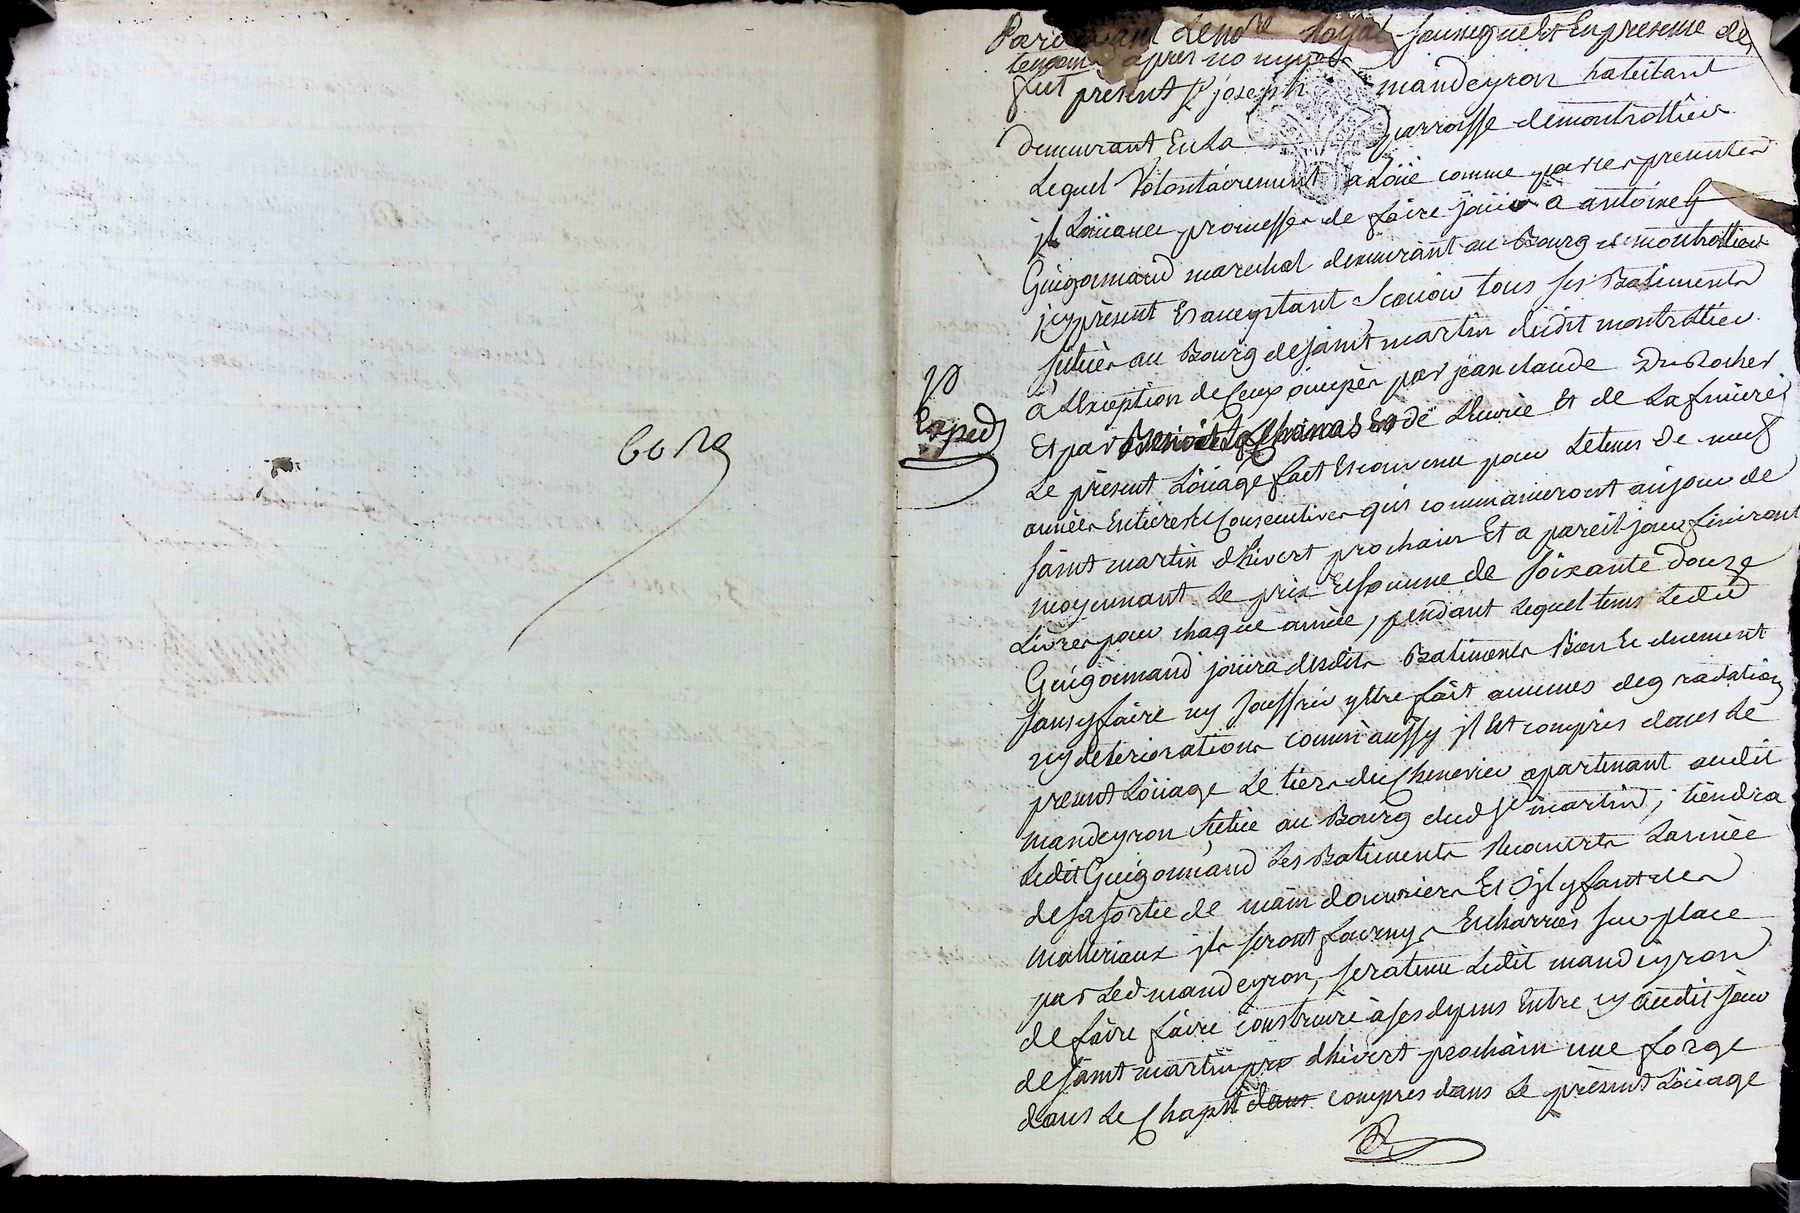 Pardevant le no.re Royal soussigné Et En presence des
temoins après nommés
fut présent Sr joseph mandeyron habitant
demeurant En La parroisse demontrottier
Lequel Volontairement a Loüé comme par ces presentes
jl Loüe avec promesses de faire joüir à antoine
Guigonnand marechal demeurant au Bourg de montrottier
jcy présent Et acceptant Scavoir tous ses Batiments
situés au Bourg de saint martin dudit montrottier
à L'exception de Ceux ocupés par jean claude Du Rocher
Et par Benoit La Chinas Et de L'Ecurie Et de La finiere
Le présent Loüage fait Et convenu pour Le tems de neuf
années Entieres Et Consecutives qui commanceront au jour de
saint martin d'hivert prochain Et a pareil jour finiront
moyennant Le prix Et somme de soixante douze
Livres pour chaque année, pendant Lequel tems Ledit
Guigonnand joüira desdits Batiments Bien Et duement
sans y faire ny souffrir y Etre fait aucunes degradations
ny deteriorations comm'aussy jl Est compris dans Le
present Loüage Le tiers du Chenevier apartenant audit
mandeyron situé au Bourg dud. St martin, tiendra
Ledit Guigonnand Les Batiments Recouverts L'année
de sa sortie de main d'ouvriers Et s'jl y faut des
materiaux jls seront fournys Et charriés sur place
par Led mandeyron, sera tenu Ledit mandeyron
de faire faire construire à ses depens Entre cy Et audit jour
de saint martin pro d'hivert prochain une forge
dans Le Chapit dans compris dans Le présent Loüage
Exped